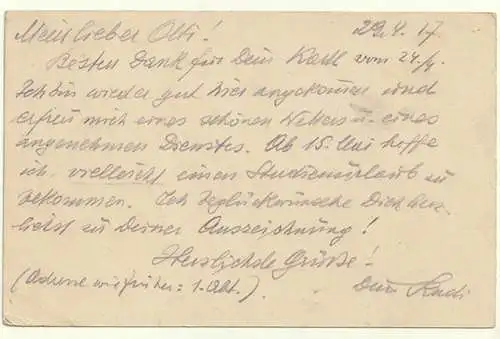 Mein lieber Otti! 29.4.17.
Besten Dank für Dein Karte vom 24./4.
Ich bin wieder gut hier angekommen und
erfreu mich eines schönen Wetters u. eines
angenehmen Dienstes. Ab 15. Mai hoffe
ich vielleicht einen Studienurlaub zu
bekommen. Ich beglückwünsche Dich herz-
lichst zu Deiner Auszeichnung!
Herzlichste Grüße!
(Adresse wie früher: 1. Abt.) Dein Rudi